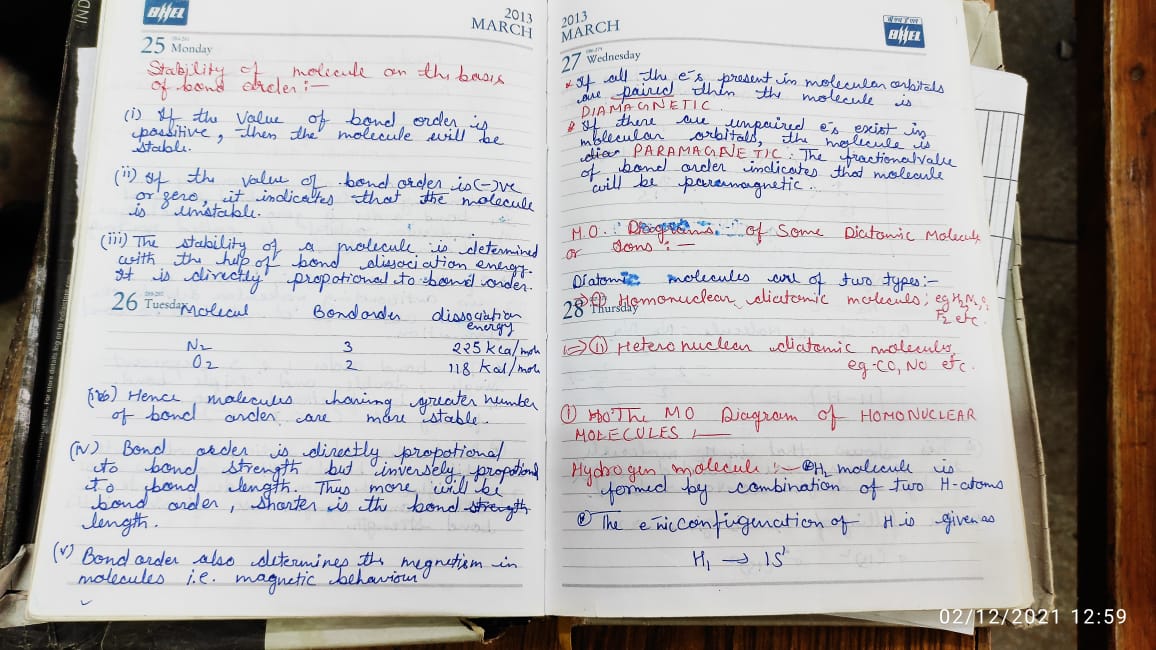 BHEL
2013
MARCH
25 Monday
Stability of molecule on the basis
of bond order :—
(i) If the value of bond order is
possitive, then the molecule will be
stable.
(ii) If the value of bond order is (-)ve
or zero, it indicates that the molecule
is unstable.
(iii) The stability of a molecule is determined
with the help of bond dissociation energy.
It is directly propotional to bond order.
26 Tuesday
Molecul Bond order dissociation
energy
N2 3 225 kcal/mol
O2 2 118 Kcal/mol
Hence, molecules having greater number
of bond order are more stable.
(iv) Bond order is directly propotional
to bond strength but inversely propotional
to bond length. Thus more will be
bond order, shorter is the bond strength
length.
(v) Bond order also determines the megnetism in
molecules i.e. magnetic behaviour
2013
MARCH
BHEL
27 Wednesday
* If all the e⁻s present in molecular orbitals
are paired then the molecule is
DIAMAGNETIC.
* If there are unpaired e⁻s exist in
molecular orbitals, the molecule is
dia PARAMAGNETIC. The fractional value
of bond order indicates that molecule
will be paramagnetic.
M.O. Diagrams of Some Diatomic Molecule
or Ions :—
Diatomic molecules are of two types:-
28 Thursday
⇒(i) Homonuclear diatomic molecules; eg H2, N2,
F2 etc.
⇒(ii) Heteronuclear diatomic molecules,
eg-CO, NO etc.
(i) The MO Diagram of HOMONUCLEAR
MOLECULES :—
Hydrogen molecule :— H2 molecule is
formed by combination of two H-atoms
The e⁻nic confugenation of H is given as
H1 → 1S¹
02/12/2021 12:59